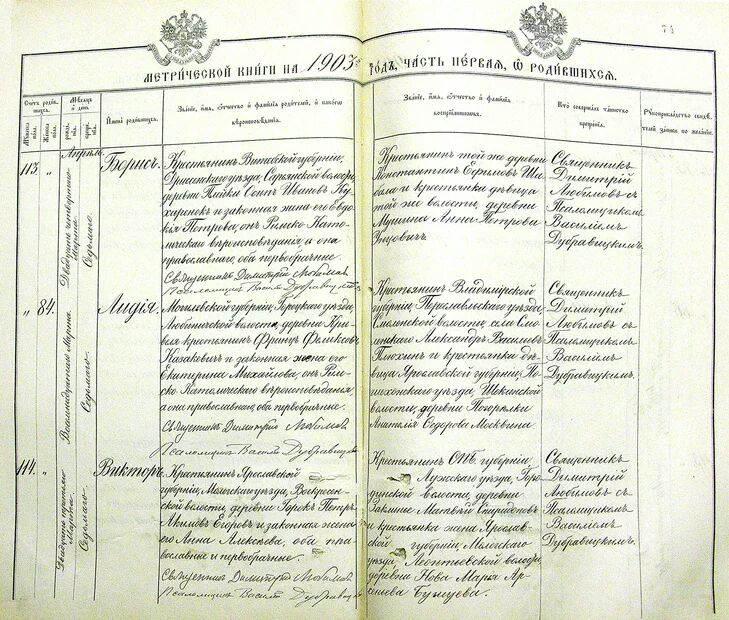 МЕТРИЧЕСКОЙ КНИГИ НА 1903й ГОДЪ, ЧАСТЬ ПЕРВАЯ, Ѡ РОДИВШИХСЯ.
Счетъ родившихся.
Мужеска пола.
Женска пола.
Мѣсяцъ и день.
рожденія.
крещенія.
Имена родившихся.
Званіе, имя, отчество и фамилія родителей, и какого
вѣроисповѣданія.
Званіе, имя, отчество и фамилія
воспріемниковъ.
Кто совершалъ таинство
крещенія.
Рукоприкладство свидѣтелей записи по желанію.
Апрѣль.
113.
"
Двадцать четвертаго Марта.
Седьмаго.
Борисъ.
Крестьянинъ Витебской губерніи,
Дриссенскаго уѣзда, Сарьянской волости,
деревни
Иванов Кухаренокъ и законная жена его Евдокія Петрова, онъ Римско-Католическаго вѣроисповѣданія, а она
православнаго, оба первобрачные.
Священникъ Димитрій Любимовъ
Псаломщикъ Василій Дубравицкій
Крестьянинъ той же деревни
Константинъ Ефимовъ Шибала и крестьянка дѣвица
той же волости, деревни
Анна Петрова
Священникъ
Димитрій
Любимовъ съ
Псаломщикомъ
Василіемъ
Дубравицкимъ.
"
84.
Восемнадцатаго Марта.
Седьмаго.
Лидія.
Могилевской губерніи, Горецкаго уѣзда,
волости, деревни
крестьянинъ Францъ Феликсовъ
Казакевичъ и законная жена его
Екатерина Михайлова, онъ Римско-Католическаго вѣроисповѣданія,
а она православнаго, оба первобрачные.
Священникъ Димитрій Любимовъ
Псаломщикъ Василій Дубравицкій
Крестьянинъ Владимірской
губерніи, Переславльскаго уѣзда,
Смоленской волости, села Смоленскаго Александръ Васильевъ
Плохинъ и крестьянка дѣвица Ярославской губерніи, Пошехонскаго уѣзда, Щетинской
волости, деревни Погорѣлки
Анатолія Ѳедорова Москвина.
Священникъ
Димитрій
Любимовъ съ
Псаломщикомъ
Василіемъ
Дубравицкимъ.
114.
"
Двадцать третьяго Марта.
Седьмаго.
Викторъ.
Крестьянинъ Ярославской
губерніи, Мологскаго уѣзда, Воскресенской волости, деревни Горокъ Петръ
Акимовъ Егоровъ и законная жена
его Анна Алексѣева, оба православные и первобрачные.
Священникъ Димитрій Любимовъ
Псаломщикъ Василій Дубравицкій
Крестьянинъ СПБ. губерніи
Лужскаго уѣзда, Городенской волости, деревни
Заклинье Матвѣй Спиридоновъ
и крестьянка жена Ярославской губерніи, Мологскаго
уѣзда, Леонтьевской волости,
деревни Нова Марья Арсеньева
Священникъ
Димитрій
Любимовъ съ
Псаломщикомъ
Василіемъ
Дубравицкимъ.